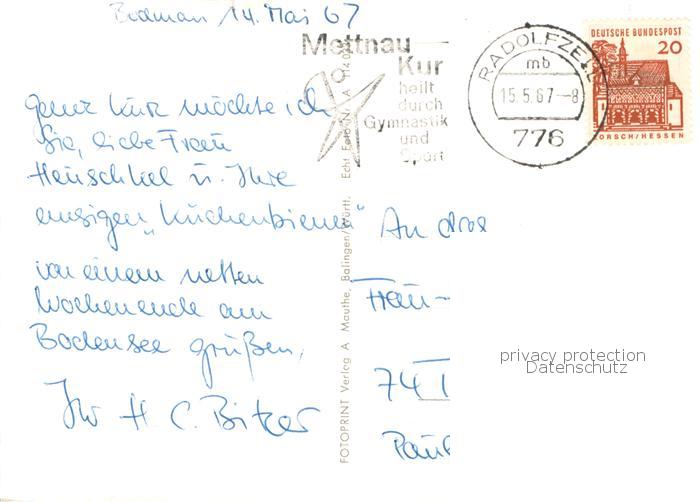 Bodman 14. Mai 67
Mettnau
Kur
heilt
durch
Gymnastik
und
Sport
RADOLFZELL
mb
15.5.67-8
776
DEUTSCHE BUNDESPOST
20
LORSCH/HESSEN
ganz kurz möchte ich
Sie, liebe Frau
Henschkel u. Ihre
emsigen „Küchenbienen"
von einem netten
Wochenende am
Bodensee grüßen,
Ihr H C. Bitzer
FOTOPRINT Verlag A Mauthe, Balingen/Württ. Echt Foto
An das
74
privacy protection
Datenschutz